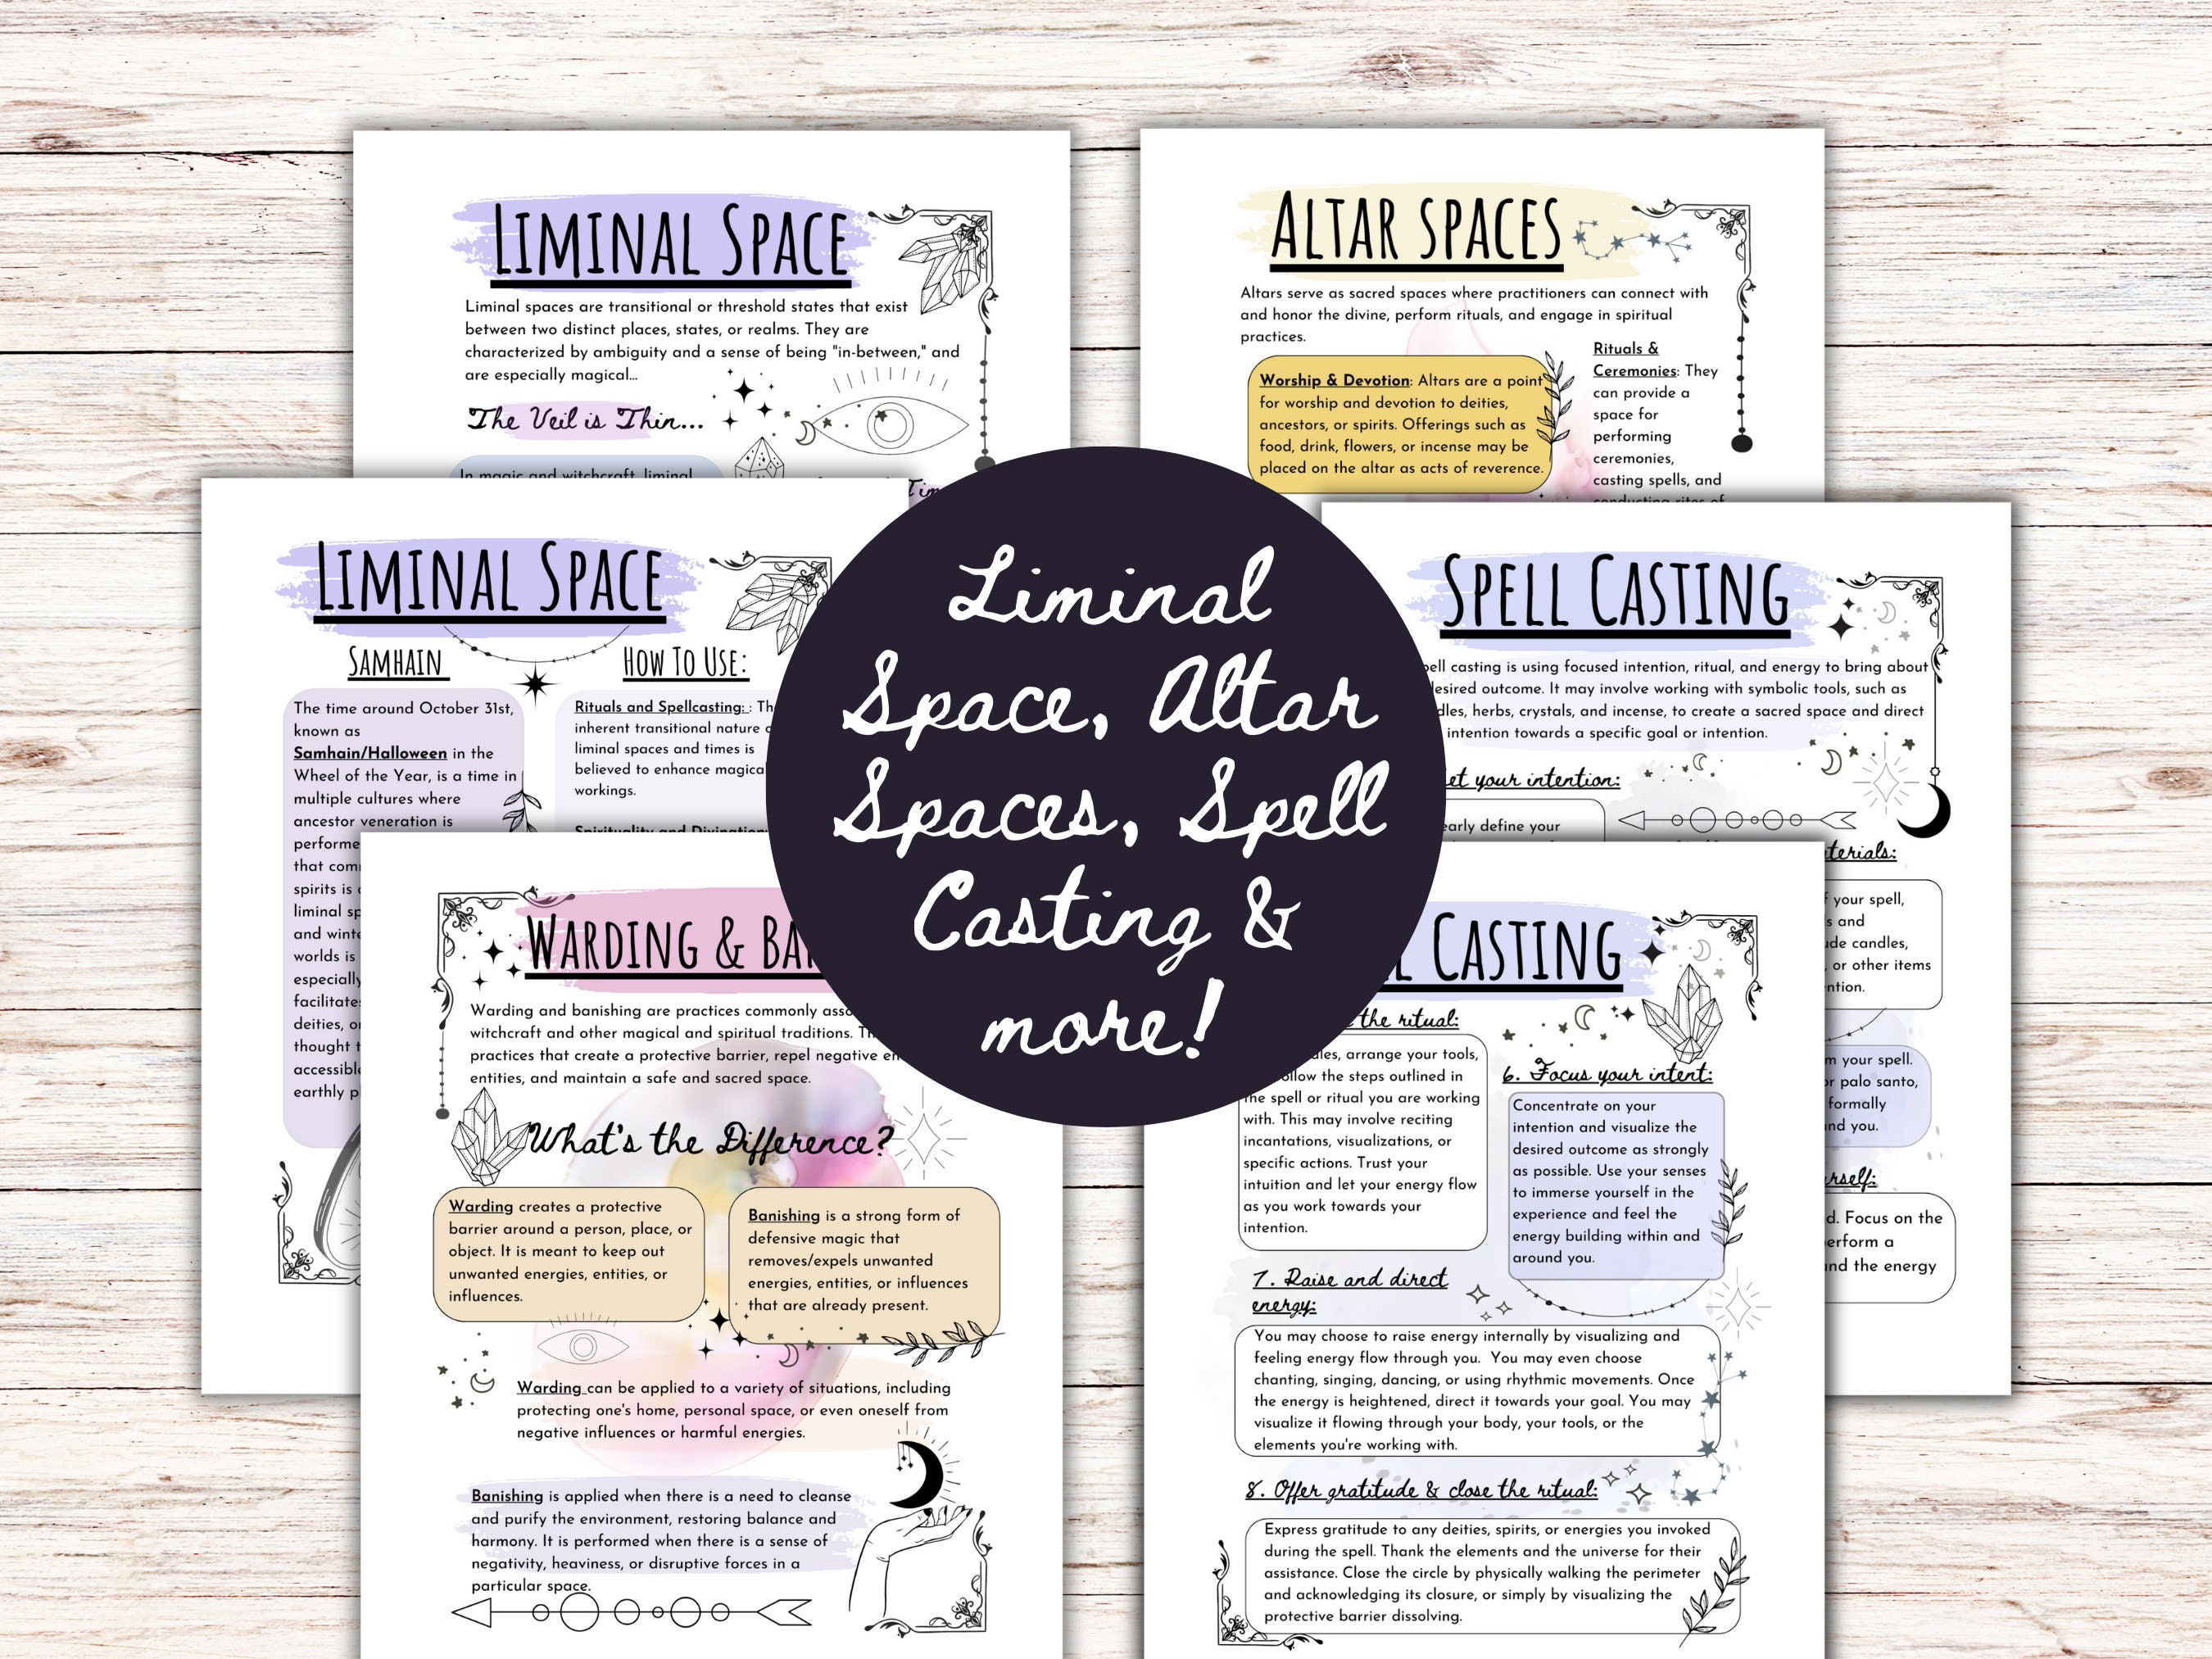 LIMINAL SPACE
Liminal spaces are transitional or threshold states that exist
between two distinct places, states, or realms. They are
characterized by ambiguity and a sense of being "in-between," and
are especially magical...
The Veil is Thin...
In magic and witchcraft, liminal
ALTAR SPACES
Altars serve as sacred spaces where practitioners can connect with
and honor the divine, perform rituals, and engage in spiritual
practices.
Worship & Devotion: Altars are a point
for worship and devotion to deities,
ancestors, or spirits. Offerings such as
food, drink, flowers, or incense may be
placed on the altar as acts of reverence.
Rituals &
Ceremonies: They
can provide a
space for
performing
ceremonies,
casting spells, and
conducting rites of
LIMINAL SPACE
SAMHAIN
The time around October 31st,
known as
Samhain/Halloween in the
Wheel of the Year, is a time in
multiple cultures where
ancestor veneration is
performe
that com
spirits is
liminal sp
and winte
worlds is
especially
facilitates
deities, o
thought t
accessible
earthly p
HOW TO USE:
Rituals and Spellcasting: : Th
inherent transitional nature o
liminal spaces and times is
believed to enhance magica
workings.
Spirituality and Divination:
Liminal
Space, Altar
Spaces, Spell
Casting &
more!
SPELL CASTING
pell casting is using focused intention, ritual, and energy to bring about
desired outcome. It may involve working with symbolic tools, such as
dles, herbs, crystals, and incense, to create a sacred space and direct
intention towards a specific goal or intention.
et your intention:
early define your
terials:
f your spell,
s and
ude candles,
, or other items
ntion.
m your spell.
or palo santo,
formally
nd you.
urself:
d. Focus on the
erform a
nd the energy
WARDING & BA
Warding and banishing are practices commonly asso
witchcraft and other magical and spiritual traditions. Th
practices that create a protective barrier, repel negative en
entities, and maintain a safe and sacred space.
What's the Difference?
Warding creates a protective
barrier around a person, place, or
object. It is meant to keep out
unwanted energies, entities, or
influences.
Banishing is a strong form of
defensive magic that
removes/expels unwanted
energies, entities, or influences
that are already present.
Warding can be applied to a variety of situations, including
protecting one's home, personal space, or even oneself from
negative influences or harmful energies.
Banishing is applied when there is a need to cleanse
and purify the environment, restoring balance and
harmony. It is performed when there is a sense of
negativity, heaviness, or disruptive forces in a
particular space.
L CASTING
the ritual:
dles, arrange your tools,
ollow the steps outlined in
the spell or ritual you are working
with. This may involve reciting
incantations, visualizations, or
specific actions. Trust your
intuition and let your energy flow
as you work towards your
intention.
6. Focus your intent:
Concentrate on your
intention and visualize the
desired outcome as strongly
as possible. Use your senses
to immerse yourself in the
experience and feel the
energy building within and
around you.
7. Raise and direct
energy:
You may choose to raise energy internally by visualizing and
feeling energy flow through you. You may even choose
chanting, singing, dancing, or using rhythmic movements. Once
the energy is heightened, direct it towards your goal. You may
visualize it flowing through your body, your tools, or the
elements you're working with.
8. Offer gratitude & close the ritual:
Express gratitude to any deities, spirits, or energies you invoked
during the spell. Thank the elements and the universe for their
assistance. Close the circle by physically walking the perimeter
and acknowledging its closure, or simply by visualizing the
protective barrier dissolving.